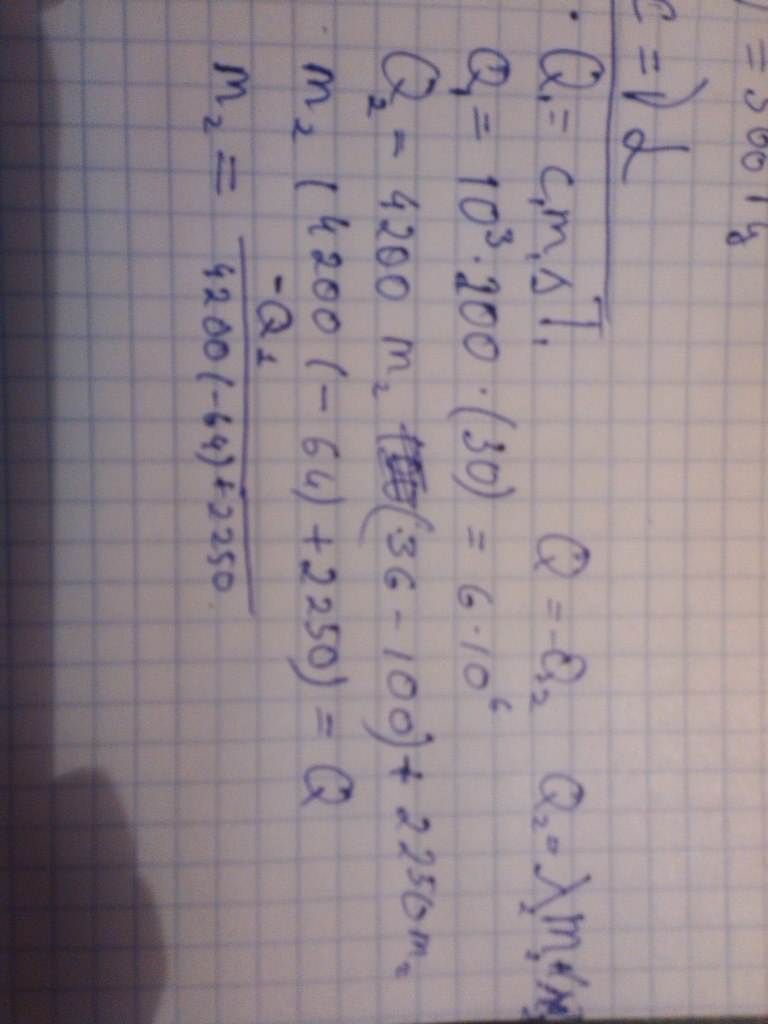 = 500 Гц
c = λ
Q₁ = c₁m₁ΔT₁ Q = -Q₂ Q₂ = λ₂m₂+
Q₁ = 10³·200·(30) = 6·10⁶
Q₂ = 4200 m₂ (36-100)+2250m₂
m₂ (4200(-64)+2250) = Q
m₂ = -Q₁
4200(-64)+2250